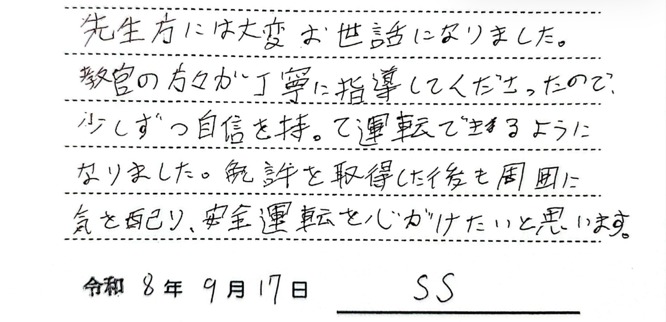 先生方には大変お世話になりました。
教官の方々が丁寧に指導してくださったので、
少しずつ自信を持って運転できるように
なりました。免許を取得した後も周囲に
気を配り、安全運転を心がけたいと思います。
令和 8年 9月17日 SS